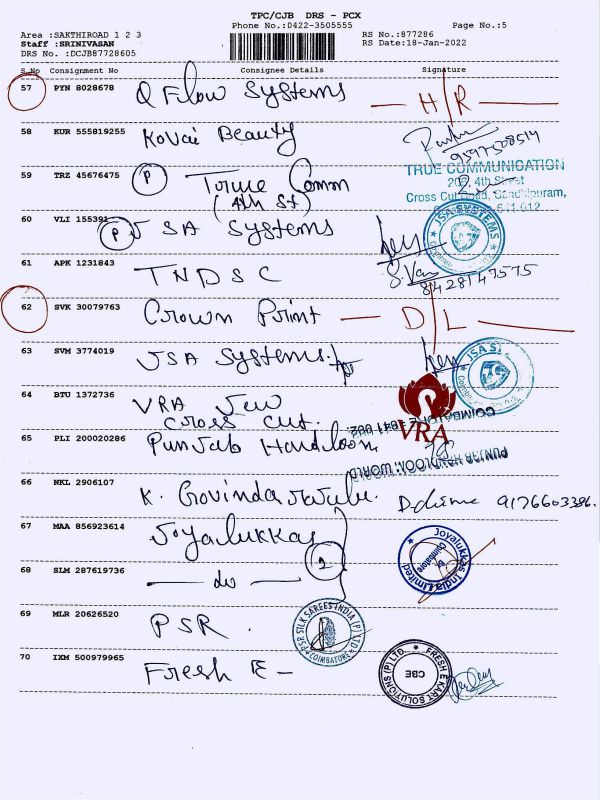 TPC/CJB DRS - PCX
Phone No.:0422-3505555
Page No.:5
Area :SAKTHIROAD 1 2 3
RS No.:877286
Staff :SRINIVASAN
RS Date:18-Jan-2022
DRS No. :DCJB87728605
S.No Consignment No Consignee Details Signature
57 PYN 8028678 Q Flow Systems H/R
58 KUR 555819255 Kovai Beauty
9597508514
59 TRZ 45676475 P True Common
(4th St)
TRUE COMMUNICATION
202, 4th Street
Cross Cut Road, Gandhipuram,
641 012
60 VLI 155391 P JSA Systems
JSA SYSTEMS
61 APK 1231843 TNDSC
8428147575
62 SVK 30079763 Crown Print D/L
63 SVM 3774019 JSA Systems
JSA
64 BTU 1372736 VRA New
Cross Cut.
VRA
COIMBATORE
65 PLI 200020286 Punjab Handloom
PUNJAB HANDLOOM WORLD
66 NKL 2906107 K. Govindaswamy 9176603396.
67 MAA 856923614 Joyalukkas
Joyalukkas India Limited
Coimbatore
2
68 SLM 287619736 — do —
69 MLR 20626520 PSR.
PSR SILK SAREES INDIA (P) LTD
COIMBATORE
70 IXM 500979965 Fresh E -
FRESH E KART SOLUTIONS (P) LTD.
CBE